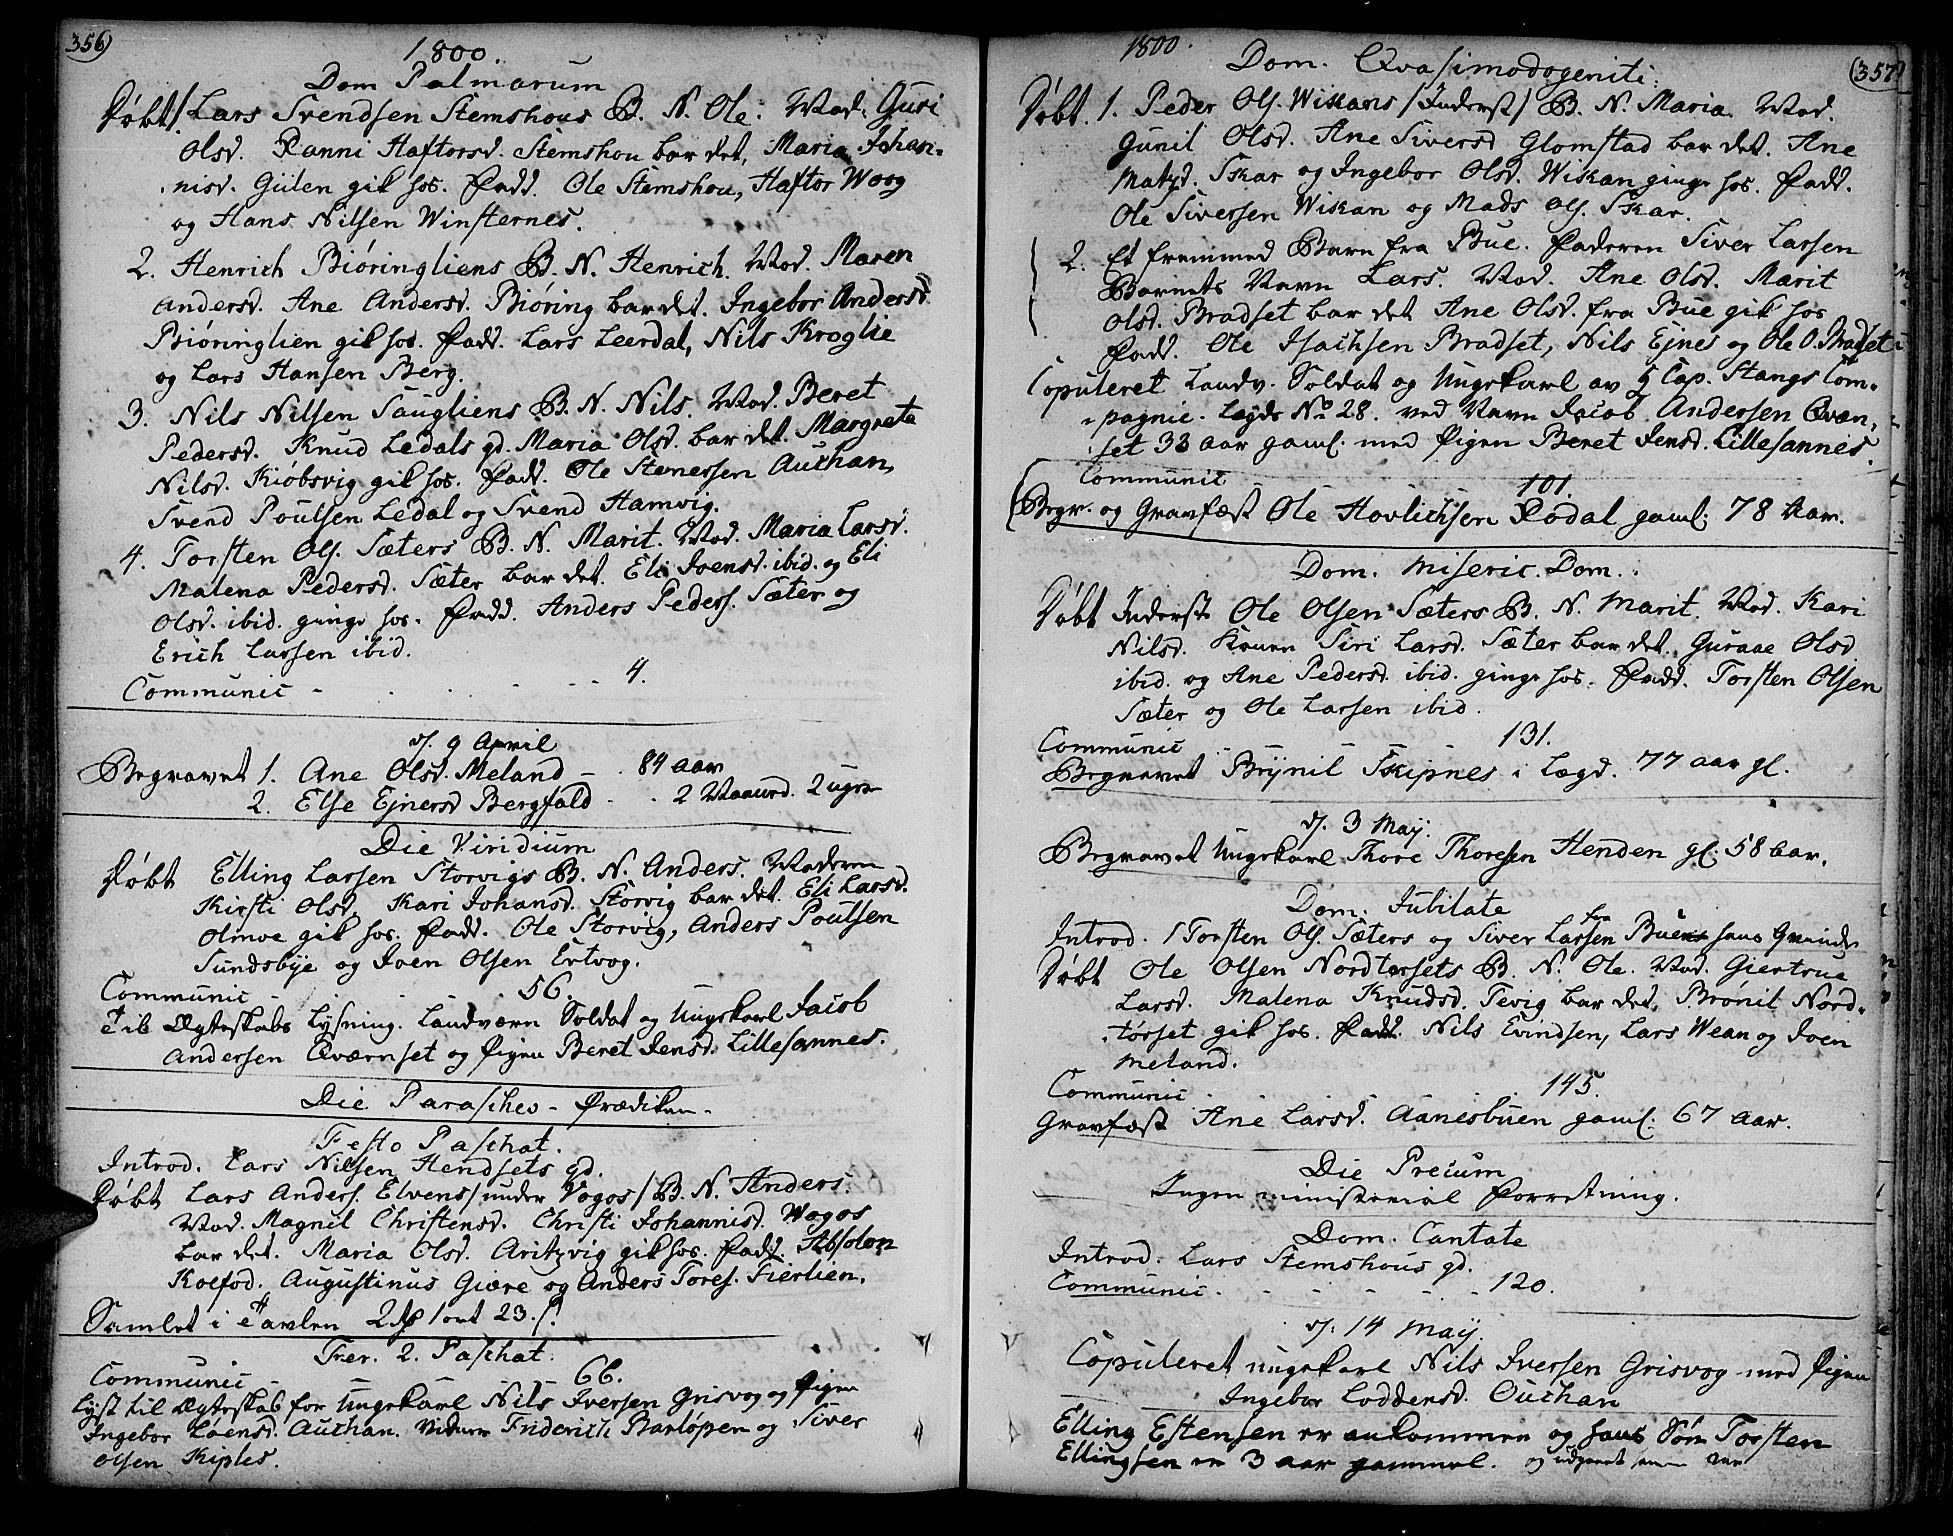 356)
1800.
Dom Palmarum
Døbt 1. Lars Svendsen Stemshous B. N. Ole. Mod. Guri
Olsd. Ranni Haftorsd. Stemshou bar det, Maria Johan-
nisd. Gülen gik hos. Fadd. Ole Stemshou, Haftor Woog
og Hans Nilsen Winsternes.
2. Henrich Biøringliens B. N. Henrich. Mod. Maren
Andersd. Ane Andersd. Biøring bar det. Ingebor Andersd
Biøringlien gik hos. Fadd. Lars Leerdal, Nils Kroglie
og Lars Hansen Berg.
3. Nils Nilsen Saugliens B. N. Nils. Mod. Beret
Pedersd. Knud Ledals gd. Maria Olsd. bar det. Margreta
Nilsd. Kiøbsvig gik hos. Fadd. Ole Stenessen Auchan,
Svend Poulsen Ledal og Svend Hamvig.
4. Torsten Ols. Sæters B. N. Marit. Mod. Maria Larsd.
Malena Pedersd. Sæter bar det. Eli Joensd. ibid. og Eli
Olsd. ibid. ginge hos. Fadd. Anders Peders. Sæter og
Erich Larsen ibid.
Communic - - - 4.
d. 9 April
Begravet 1. Ane Olsd. Meland - 84 aar
2. Else Ejnersd Bergfald - 2 Maaned. 2 uger
Die Viridium
Døbt Elling Larsen Storvigs B. N. Anders. Moderen
Kirsti Olsd. Kari Johansd. Storvig bar det. Eli Larsd.
Olmoe gik hos. Fadd. Ole Storvig, Anders Poulsen
Sundsbye og Joen Olsen Ertvog.
Communic - 56.
Til Ægteskabs Lysning. Landværn Soldat og Ungekarl Jacob
Andersen Qværnset og Pigen Beret Jensd. Lillesannes.
Die Parasches - Prædiken.
Festo Paschat.
Introd. Lars Nilsen Hendsets gd.
Døbt Lars Anders. Elvens / under Vogos / B. N. Anders.
Mod. Magnil Christensd. Christi Johannisd. Wogos
bar det. Maria Olsd. Aritzvig gik hos. Fadd. Absolon
Koefod. Augustinus Giære og Anders Tores. Fierlien.
Samlet i Tavlen 2 rd 1 ort 23 s.
Fer. 2. Paschat.
Communic - 66.
Lyst til Ægteskab for Ungekarl Nils Iversen Grisvog og Pigen
Ingebor Loensd. Auchan. Friderich Barløpen og Siver
Olsen Kiples.
(357)
1800.
Dom. Qvasimodogeniti.
Døbt. 1. Peder Ols. Wikans / Inderst / B. N. Maria. Mod.
Gunil Olsd. Ane Siversd Glomstad bar det. Ane
Matzd. Skar og Ingebor Olsd. Wikan ginge hos. Fadd.
Ole Siversen Wikan og Mads Ols. Skar.
2. Et fremmed Barn fra Bue. Faderen Siver Larsen
Barnets Navn Lars. Mod. Ane Olsd. Marit
Olsd. Bradset bar det Ane Olsd. fra Bue gik hos
Fadd. Ole Isachsen Bradset, Nils Ejnes og Ole O. Bradset
Copuleret Landv. Soldat og Ungekarl av Cap. Stangs Com-
pagnie. Legds No 28. ved Navn Jacob Andersen Qvæn-
set 33 aar gaml. med Pigen Beret Jensd. Lillesannes.
Communic 101.
Begr. og Gravfæst Ole Hovlichsen Rodal gaml. 78 Aar.
Dom. Miseric. Dom.
Døbt Inderst Ole Olsen Sæters B. N. Marit. Mod. Kari
Nilsd. Konen Siri Larsd. Sæter bar det. Guraae Olsd
ibid. og Ane Pedersd. ibid. ginge hos. Fadd. Torsten Olsen
Sæter og Ole Larsen ibid.
Communic - 131.
Begravet Brynil Skipnes i Lægd. 77 aar gl.
d. 3 May.
Begravet Ungekarl Thore Thoresen Henden gl. 58 Aar.
Dom. Jubilate
Introd. 1 Torsten Ols. Sæters og Siver Larsen fra Buens hans Qvinde
Døbt Ole Olsen Nordtørsets B. N. Ole. Mod. Giertrue
Larsd. Malena Knudsd. Tevig bar det. Brønil Nord-
tørset gik hos. Fadd. Nils Evindsen, Lars Wean og Joen
Meland.
Communic - 145.
Gravfæst Ane Larsd. Aanesbuen gaml. 67 Aar.
Die Precium
Ingen ministerial Forretning.
Dom. Cantate
Introd. Lars Stemshous gd.
Communic. - - - 120.
d. 14 May.
Copuleret ungekarl Nils Iversen Grisvog med Pigen
Ingebor Loddensd. Ouchan
Elling Estensen er ankommen og hans Søn Torsten
Ellingsen er 3 aar gammel. og udgaaet